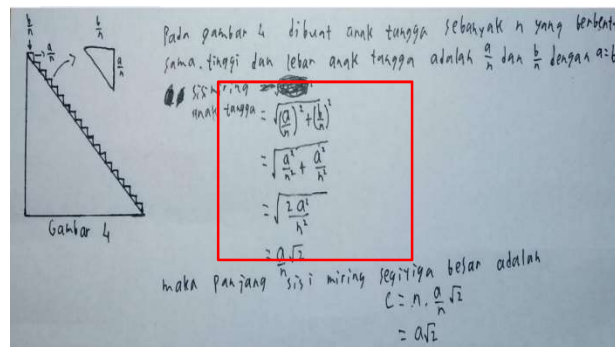 b/n
a/n
b/n
a/n
Gambar 4
Pada gambar 4 dibuat anak tangga sebanyak n yang berbent
sama. tinggi dan lebar anak tangga adalah a/n dan b/n dengan a=b
sisi miring
anak tangga = √((a/n)² + (b/n)²)
= √(a²/n² + a²/n²)
= √(2a²/n²)
= a/n √2
maka panjang sisi miring segitiga besar adalah
C = n. a/n √2
= a√2